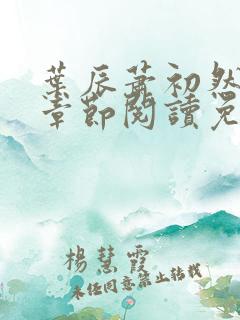 葉辰蕭初然
章節閱讀免
楊慧霞
未經同意禁止轉載